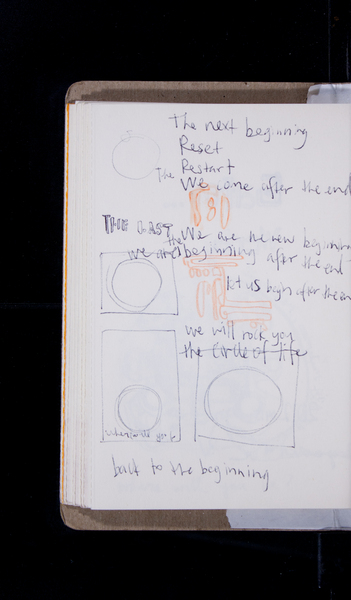 The next beginning
Reset
Restart
The
We come after the end
THE LAST
the We are the new beginning
we are beginning after the end
let us begin after the end
we will rock you
the circle of life
when will you
back to the beginning